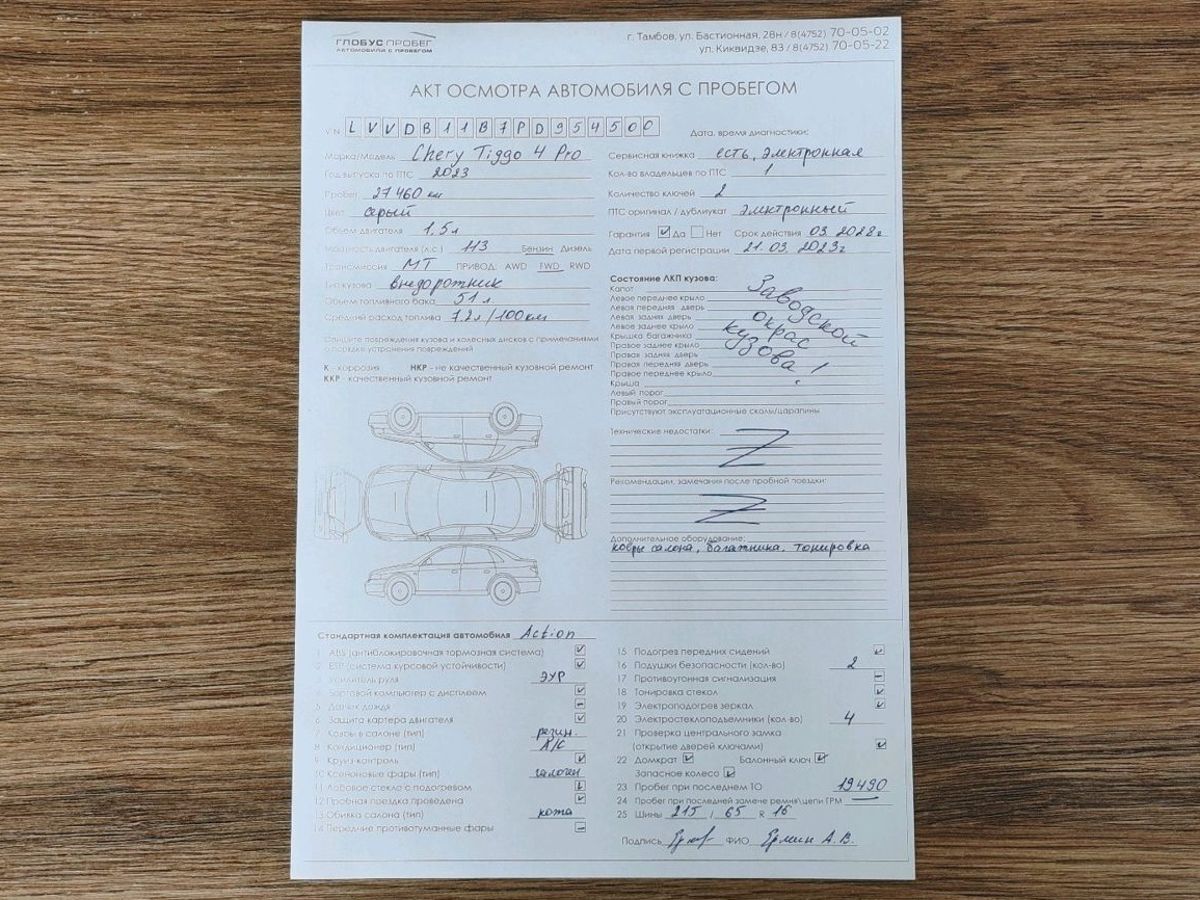 ГЛОБУС ПРОБЕГ
АВТОМОБИЛИ С ПРОБЕГОМ
г. Тамбов, ул. Бастионная, 28н / 8(4752) 70-05-02
ул. Киквидзе, 83 / 8(4752) 70-05-22
АКТ ОСМОТРА АВТОМОБИЛЯ С ПРОБЕГОМ
VIN LVVDB11B7PD954500
Марка/Модель Chery Tiggo 4 Pro
Год выпуска по ПТС 2023
Пробег 27 460 км
Цвет серый
Объем двигателя 1,5 л
Мощность двигателя (л.с.) 113 Бензин Дизель
Трансмиссия МТ ПРИВОД: AWD FWD RWD
Тип кузова Внедорожник
Объем топливного бака 51 л.
Средний расход топлива 7.2 л/100 км
Опишите повреждения кузова и колесных дисков с примечаниями
о порядке устранения повреждений
К - коррозия НКР - не качественный кузовной ремонт
ККР - качественный кузовной ремонт
Дата, время диагностики:
Сервисная книжка есть, электронная
Кол-во владельцев по ПТС 1
Количество ключей 2
ПТС оригинал / дубликат электронный
Гарантия ☑ Да ☐ Нет Срок действия 03. 2028 г
Дата первой регистрации 21. 03. 2023г
Состояние ЛКП кузова:
Капот
Левое переднее крыло
Левая передняя дверь
Левая задняя дверь
Левое заднее крыло
Крышка багажника
Правое заднее крыло
Правая задняя дверь
Правая передняя дверь
Правое переднее крыло
Крыша
Левый порог
Правый порог
Заводской
окрас
кузова!
Присутствуют эксплуатационные сколы/царапины
Технические недостатки:
Рекомендации, замечания после пробной поездки:
Дополнительное оборудование:
ковры салона, багажника, тонировка
Стандартная комплектация автомобиля Action
1 ABS (антиблокировочная тормозная система) ☑
2 ESP (система курсовой устойчивости) ☑
3 Усилитель руля ЭУР
4 Бортовой компьютер с дисплеем ☑
5 Датчик дождя –
6 Защита картера двигателя ☑
7 Ковры в салоне (тип) резин.
8 Кондиционер (тип) A/C
9 Круиз-контроль ☑
10 Ксеноновые фары (тип) галоген
11 Лобовое стекло с подогревом ☑
12 Пробная поездка проведена ☑
13 Обивка салона (тип) кожа
14 Передние противотуманные фары –
15 Подогрев передних сидений ☑
16 Подушки безопасности (кол-во) 2
17 Противоугонная сигнализация –
18 Тонировка стекол ☑
19 Электроподогрев зеркал ☑
20 Электростеклоподъемники (кол-во) 4
21 Проверка центрального замка
(открытие дверей ключами) ☑
22 Домкрат ☑ Балонный ключ ☑
Запасное колесо ☑
23 Пробег при последнем ТО 19490
24 Пробег при последней замене ремня\цепи ГРМ —
25 Шины 215 / 65 R 16
Подпись ФИО Ермин А. В.